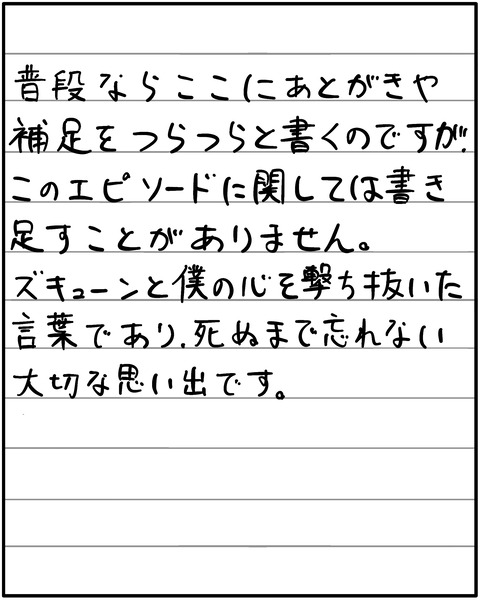 普段ならここにあとがきや
補足をつらつらと書くのですが、
このエピソードに関しては書き
足すことがありません。
ズキューンと僕の心を撃ち抜いた
言葉であり、死ぬまで忘れない
大切な思い出です。